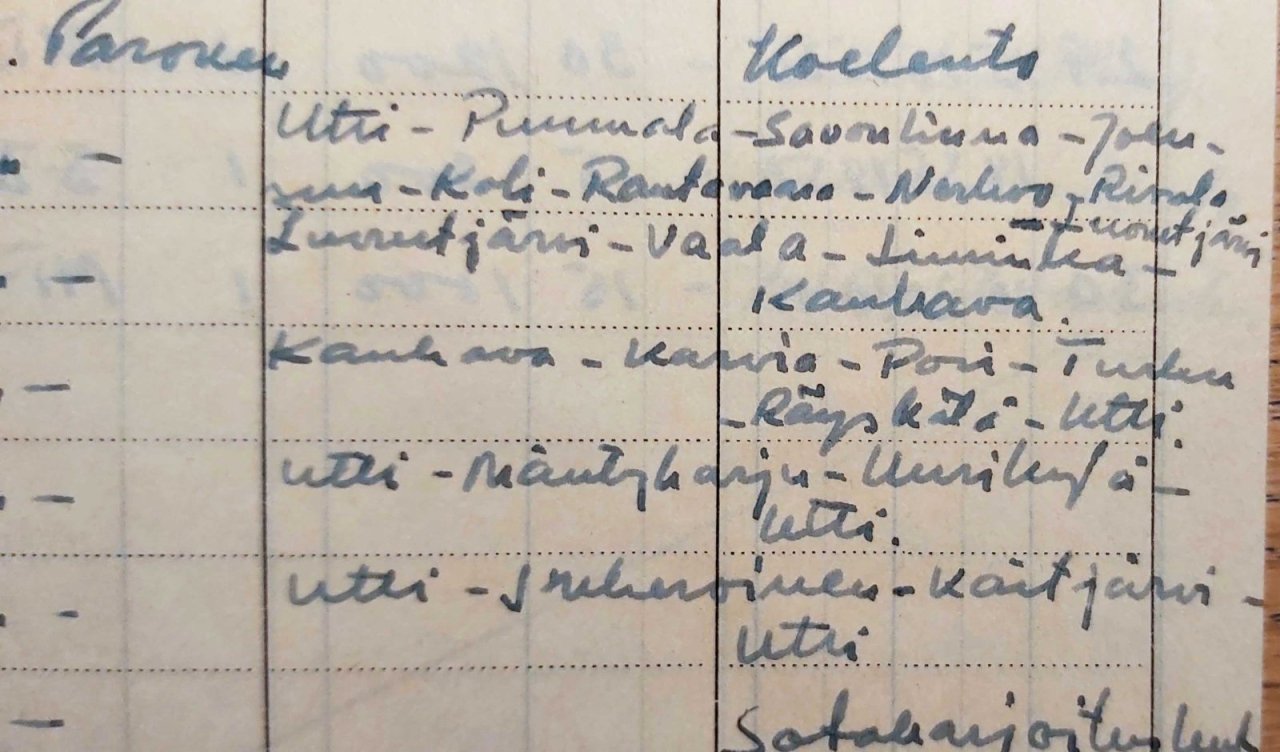 . Paronen Koelento
Utti - Puumala - Savonlinna - Joen-
" - suu - Koli - Rautavaara - Nerkoo - Rissala
- Luonetjärvi
" - Luonetjärvi - Vaala - Liminka -
Kauhava.
" - Kauhava - Karvia - Pori - Turku
- Räyskälä - Utti.
" - Utti - Mäntyharju - Uusikylä -
Utti.
" - Utti - Inkeroinen - Kaitjärvi -
Utti
- Sotaharjoituslent